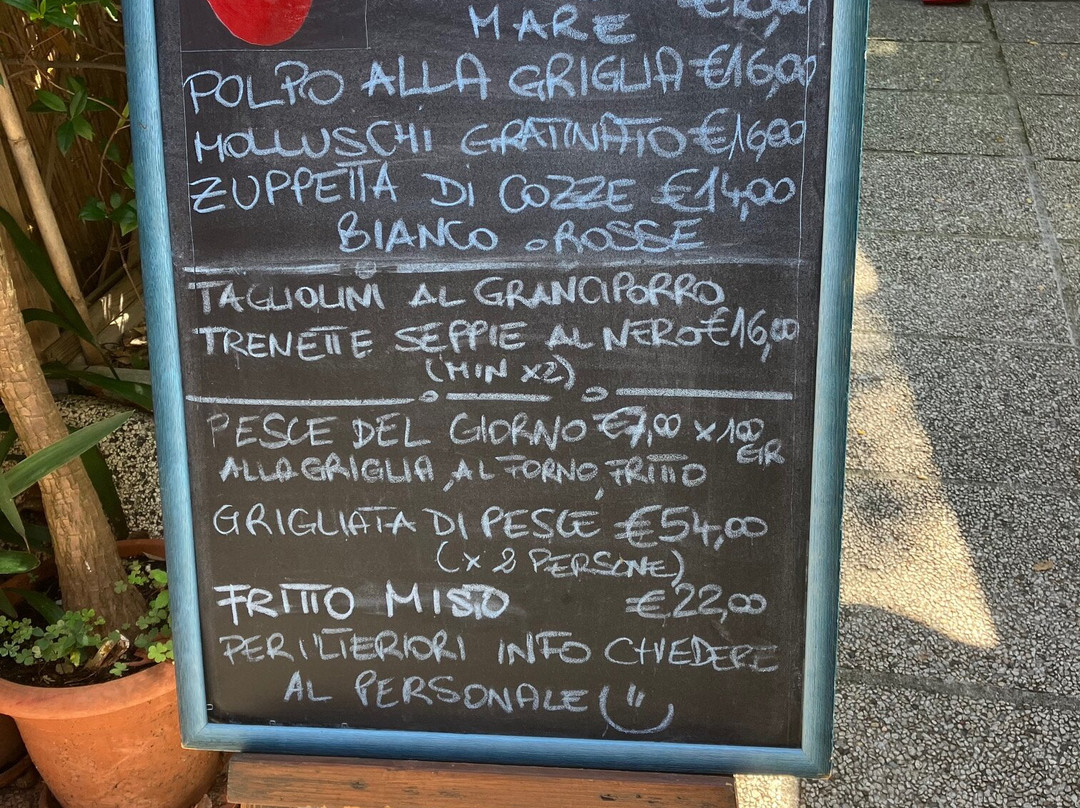 MARE
POLPO ALLA GRIGLIA €16,00
MOLLUSCHI GRATINATO €16,00
ZUPPETTA DI COZZE €14,00
BIANCO O ROSSE
TAGLIOLINI AL GRANCIPORRO
TRENETTE SEPPIE AL NERO €16,00
(MIN X2)
PESCE DEL GIORNO €7,00 X 100
GR
ALLA GRIGLIA, AL FORNO, FRITTO
GRIGLIATA DI PESCE €54,00
(X 2 PERSONE)
FRITTO MISTO €22,00
PER ULTERIORI INFO CHIEDERE
AL PERSONALE